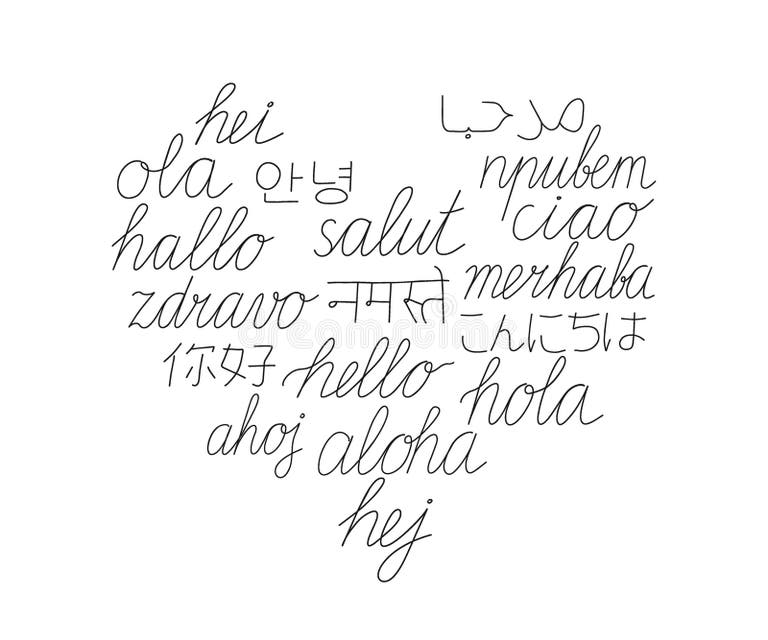 hei مرحبا
ola 안녕 привет
hallo salut ciao
zdravo नमस्ते merhaba
こんにちは
你好 hello hola
ahoj aloha
hej